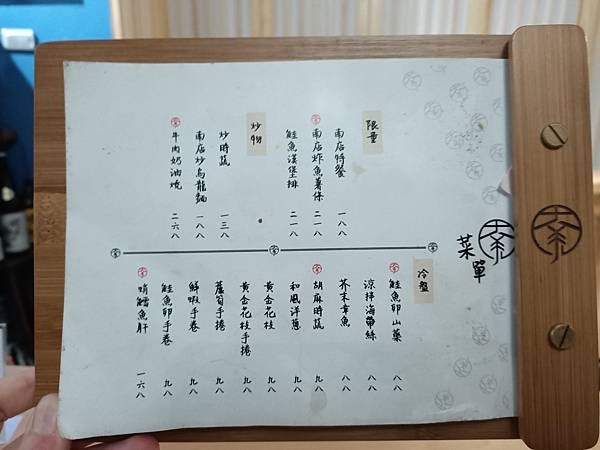 菜單
限量
南店特餐 一八八
南店炸魚薯條 二一八
鮭魚漢堡排 二一八
炒物
炒時蔬 一三八
南店炒烏龍麵 一八八
牛肉奶油燒 二六八
冷盤
鮭魚卵山藥 八八
涼拌海帶絲 八八
芥末章魚 八八
胡麻時蔬 九八
和風洋蔥 九八
黃金花枝 九八
黃金花枝手捲 九八
蘆筍手捲 九八
鮮蝦手卷 九八
鮭魚卵手卷 九八
鱈魚肝 一六八